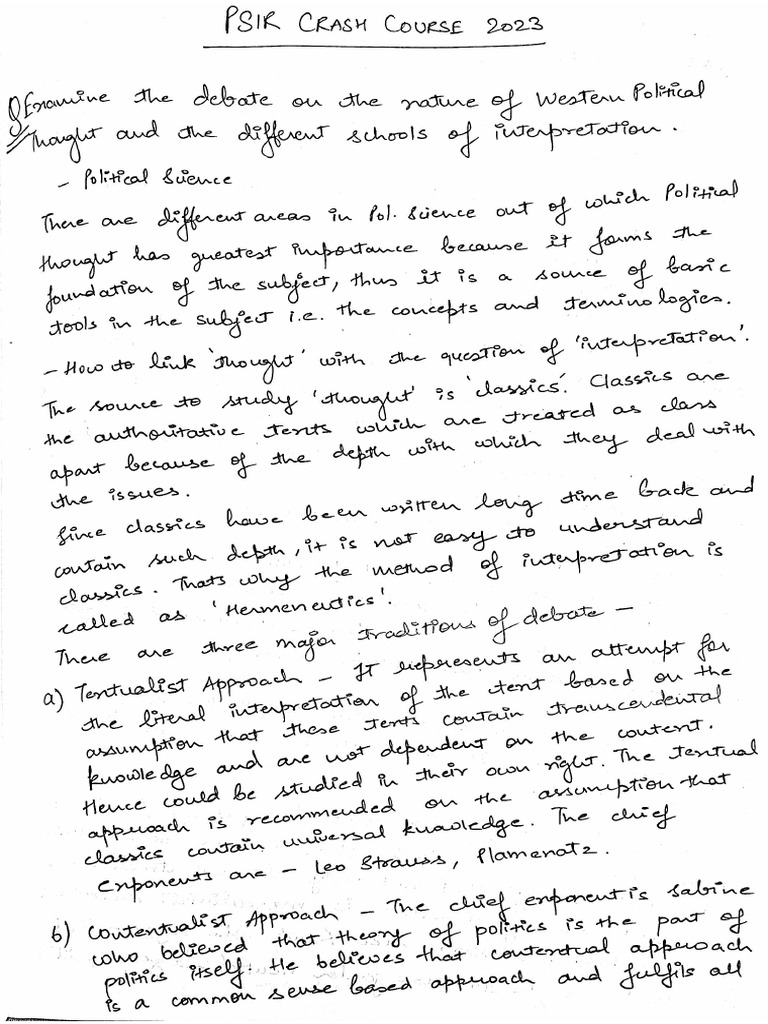 PSIR CRASH COURSE 2023
Q Examine the debate on the nature of Western Political
Thought and the different schools of interpretation.
- Political Science
There are different areas in Pol. Science out of which Political
thought has greatest importance because it forms the
foundation of the subject, thus it is a source of basic
tools in the subject i.e. the concepts and terminologies.
- How to link 'thought' with the question of 'interpretation'.
The source to study 'thought' is 'classics'. Classics are
the authoritative texts which are treated as class
apart because of the depth with which they deal with
the issues.
Since classics have been written long time back and
contain such depth, it is not easy to understand
classics. Thats why the method of interpretation is
called as 'Hermeneutics'.
There are three major traditions of debate -
a) Textualist Approach - It represents an attempt for
the literal interpretation of the text based on the
assumption that these texts contain transcendental
knowledge and are not dependent on the content.
Hence could be studied in their own right. The textual
approach is recommended on the assumption that
classics contain universal knowledge. The chief
exponents are - Leo Strauss, Plamenatz.
b) Contextualist Approach - The chief exponent is Sabine
who believed that theory of politics is the part of
politics itself. He believes that contextual approach
is a common sense based approach and fulfils all